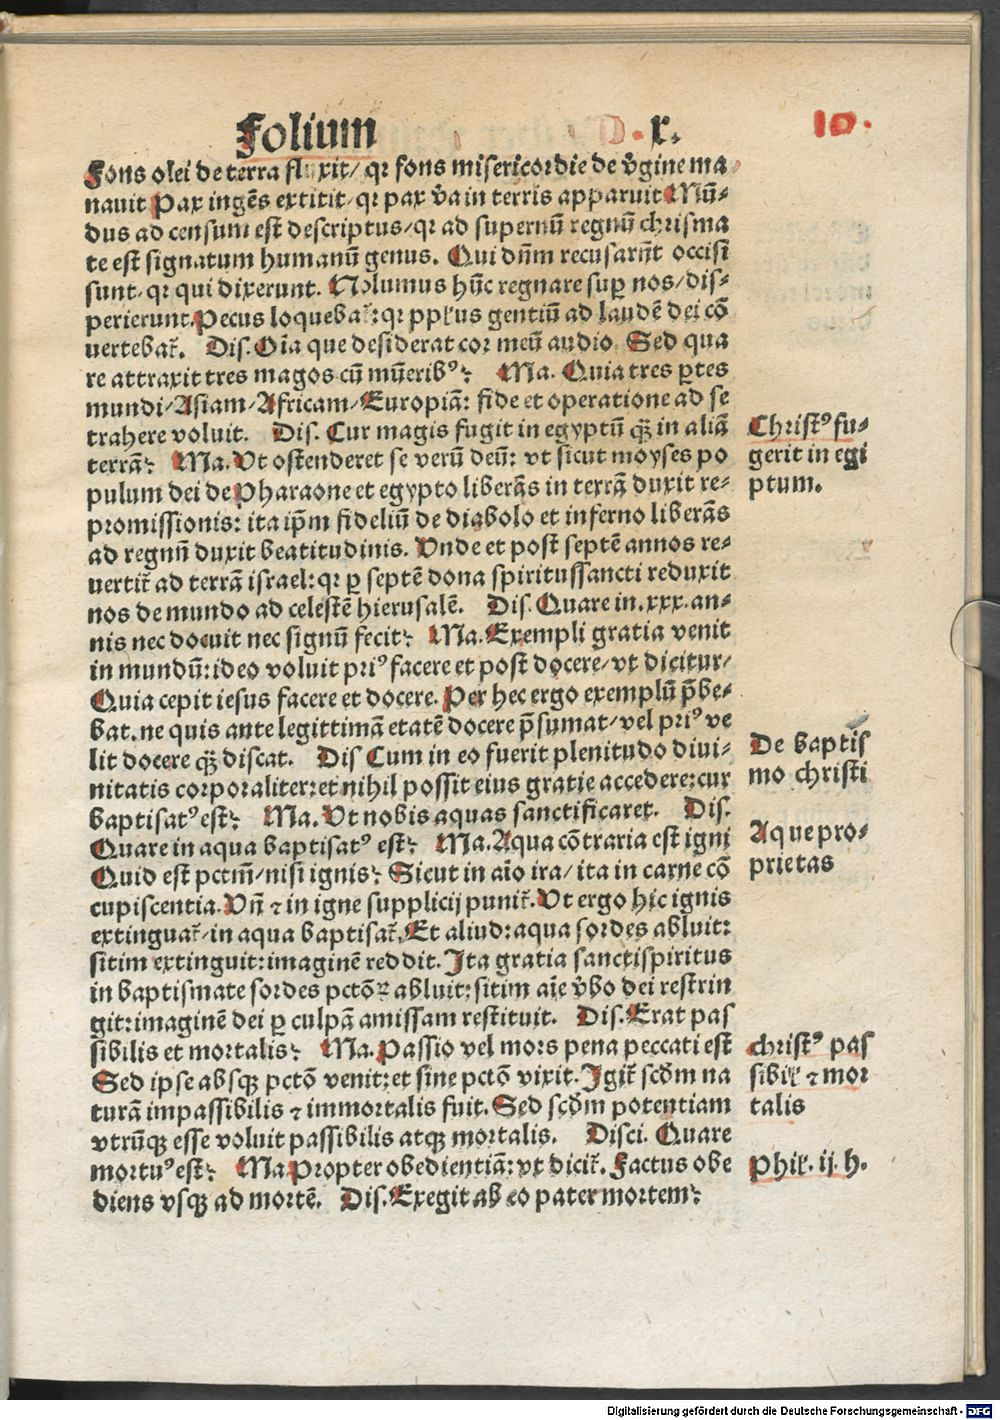 Folium x. 10.
Fons olei de terra fluxit/ qꝛ fons misericordie de v̄gine ma
nauit Pax ingēs extitit/ qꝛ pax v̄a in terris apparuit Mū=
dus ad censum est descriptus/ qꝛ ad supernū regnū chrisma
te est signatum humanū genus. Qui dn̄m recusarūt occisi
sunt/ qꝛ qui dixerunt. Nolumus hūc regnare suꝑ nos/ dis=
perierunt. Pecus loquebat᷑: qꝛ ppl'us gentiū ad laudē dei cō
uertebat᷑. Dis. Oīa que desiderat cor meū audio Sed qua
re attraxit tres magos cū mūeribꝰ? Ma. Quia tres ꝑtes
mundi/ Asiam/ Africam/ Europiā: fide et operatione ad se
trahere voluit. Dis. Cur magis fugit in egyptū qꝫ in aliā
terrā? Ma. Vt ostenderet se verū deū: vt sicut moyses po
pulum dei de Pharaone et egypto liberās in terrā duxit re=
promissionis: ita ip̄m fideliū de diabolo et inferno liberās
ad regnū duxit beatitudinis. Vnde et post septē annos re=
uertit᷑ ad terrā israel: qꝛ ꝑ septē dona spiritussancti reduxit
nos de mundo ad celestē hierusalē. Dis. Quare in .xxx. an=
nis nec docuit nec signū fecit? Ma. Exempli gratia venit
in mundū: ideo voluit priꝰ facere et post docere/ vt dicitur/
Quia cepit iesus facere et docere. Per hec ergo exemplū p̄be=
bat. ne quis ante legittimā etatē docere p̄sumat/ vel priꝰ ve
lit docere qꝫ discat. Dis Cum in eo fuerit plenitudo diui=
nitatis corporaliter: et nihil possit eius gratie accedere: cur
baptisatꝰ est? Ma. Vt nobis aquas sanctificaret. Dis.
Quare in aqua baptisatꝰ est? Ma. Aqua cōtraria est igni
Quid est pctm̄/ nisi ignis? Sicut in aīo ira/ ita in carne cō
cupiscentia. Vn̄ ⁊ in igne supplicij punit᷑. Vt ergo hic ignis
extinguat᷑/ in aqua baptisat᷑. Et aliud: aqua sordes abluit:
sitim extinguit: imaginē reddit. Ita gratia sanctispiritus
in baptismate sordes pctōꝝ abluit: sitim aīe v̄bo dei restrin
git: imaginē dei ꝑ culpā amissam restituit. Dis. Erat pas
sibilis et mortalis? Ma. Passio vel mors pena peccati est
Sed ipse absqꝫ pctō venit: et sine pctō vixit. Igit᷑ scd̄m na
turā impassibilis ⁊ immortalis fuit. Sed scd̄m potentiam
vtrūqꝫ esse voluit passibilis atqꝫ mortalis. Disci. Quare
mortuꝰ est? Ma Propter obedientiā: vt dicit᷑. Factus obe
diens vsqꝫ ad mortē. Dis. Exegit ab eo pater mortem?
Christꝰ fu=
gerit in egi
ptum.
De baptis
mo christi
Aque pro=
prietas
christꝰ pas
sibil' ⁊ mor
talis
Phil'. ij. h.
Digitalisierung gefördert durch die Deutsche Forschungsgemeinschaft - DFG